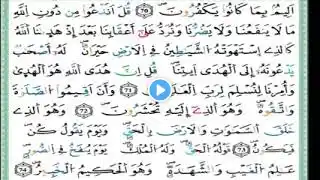 اَلِيمٌ بِمَا كَانُواْ يَكْفُرُونَۖ 70 قُلَ اَنَدْعُواْ مِن دُونِ اِللَّهِ
مَا لَا يَنفَعُنَا وَلَا يَضُرُّنَا وَنُرَدُّ عَلَىٰٓ أَعْقَٰبِنَا بَعْدَ إِذْ هَدَيٰنَا اَللَّهُ
كَالذِے اِسْتَهْوَتْهُ الشَّيَٰطِينُ فِے اِلَارْضِ حَيْرَانَۖ لَهُۥٓ أَصْحَٰبٌ
يَدْعُونَهُۥٓ إِلَى اَلْهُدَى اَئْتِنَاۖ قُلِ اِنَّ هُدَى اَللَّهِ هُوَ اَلْهُدَىٰۖ
وَأُمِرْنَا لِنُسْلِمَ لِرَبِّ اِلْعَٰلَمِينَۖ 71 وَأَنَ اَقِيمُواْ الصَّلَوٰةَ
وَاتَّقُوهُۖ وَهُوَ الذِےٓ إِلَيْهِ تُحْشَرُونَۖ 72 وَهُوَ الذِے
خَلَقَ السَّمَٰوَٰتِ وَالَارْضَ بِالْحَقِّۖ وَيَوْمَ يَقُولُ كُن
فَيَكُونُۖ 73 قَوْلُهُ الْحَقُّۖ وَلَهُ الْمُلْكُ يَوْمَ يُنفَخُ فِے اِلصُّورِۖ
عَٰلِمُ الْغَيْبِ وَالشَّهَٰدَةِۖ وَهُوَ الْحَكِيمُ الْخَبِيرُۖ 74